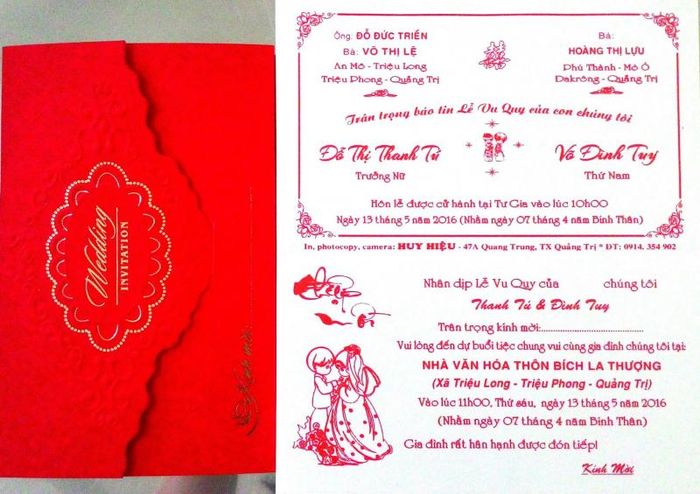 Wedding
INVITATION
Kính mời:
Ông: ĐỖ ĐỨC TRIỂN
Bà: VÕ THỊ LỆ
An Mô - Triệu Long
Triệu Phong - Quảng Trị
Bà:
HOÀNG THỊ LỰU
Phú Thành - Mô Ó
Đakrông - Quảng Trị
Trân trọng báo tin Lễ Vu Quy của con chúng tôi
Đỗ Thị Thanh Tú
Trưởng Nữ
Võ Đình Tuy
Thứ Nam
Hôn lễ được cử hành tại Tư Gia vào lúc 10h00
Ngày 13 tháng 5 năm 2016 (Nhằm ngày 07 tháng 4 năm Bính Thân)
In, photocopy, camera: HUY HIỆU - 47A Quang Trung, TX Quảng Trị * ĐT: 0914. 354 902
Nhân dịp Lễ Vu Quy của chúng tôi
Thanh Tú & Đình Tuy
Trân trọng kính mời:
Vui lòng đến dự buổi tiệc chung vui cùng gia đình chúng tôi tại:
NHÀ VĂN HÓA THÔN BÍCH LA THƯỢNG
(Xã Triệu Long - Triệu Phong - Quảng Trị)
Vào lúc 11h00, Thứ sáu, ngày 13 tháng 5 năm 2016
(Nhằm ngày 07 tháng 4 năm Bính Thân)
Gia đình rất hân hạnh được đón tiếp!
Kính Mời